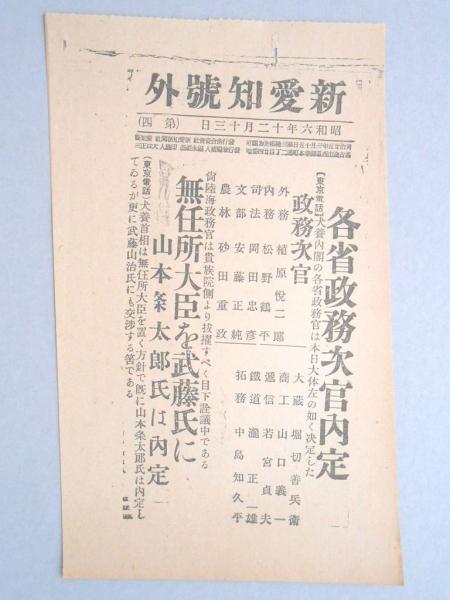 新愛知號外
昭和六年十二月十三日 (第四)
各省政務次官內定
【東京電話】犬養內閣の各省政務官は本日大体左の如く決定した
政務次官
外務 植原悅二郞
內務 松野鶴平
司法 岡田忠彥
文部 安藤正純
農林 砂田重政
大藏 堀切善兵衞
商工 山口義一
遞信 若宮貞夫
鐵道 瀧正雄
拓務 中島知久平
尙陸海政務官は貴族院側より拔擢すべく目下詮議中である
無任所大臣を武藤氏に
山本条太郞氏は內定
(東京電話)犬養首相は無任所大臣を置く方針で既に山本条太郞氏は內定し
てゐるが更に武藤山治氏にも交涉する筈である